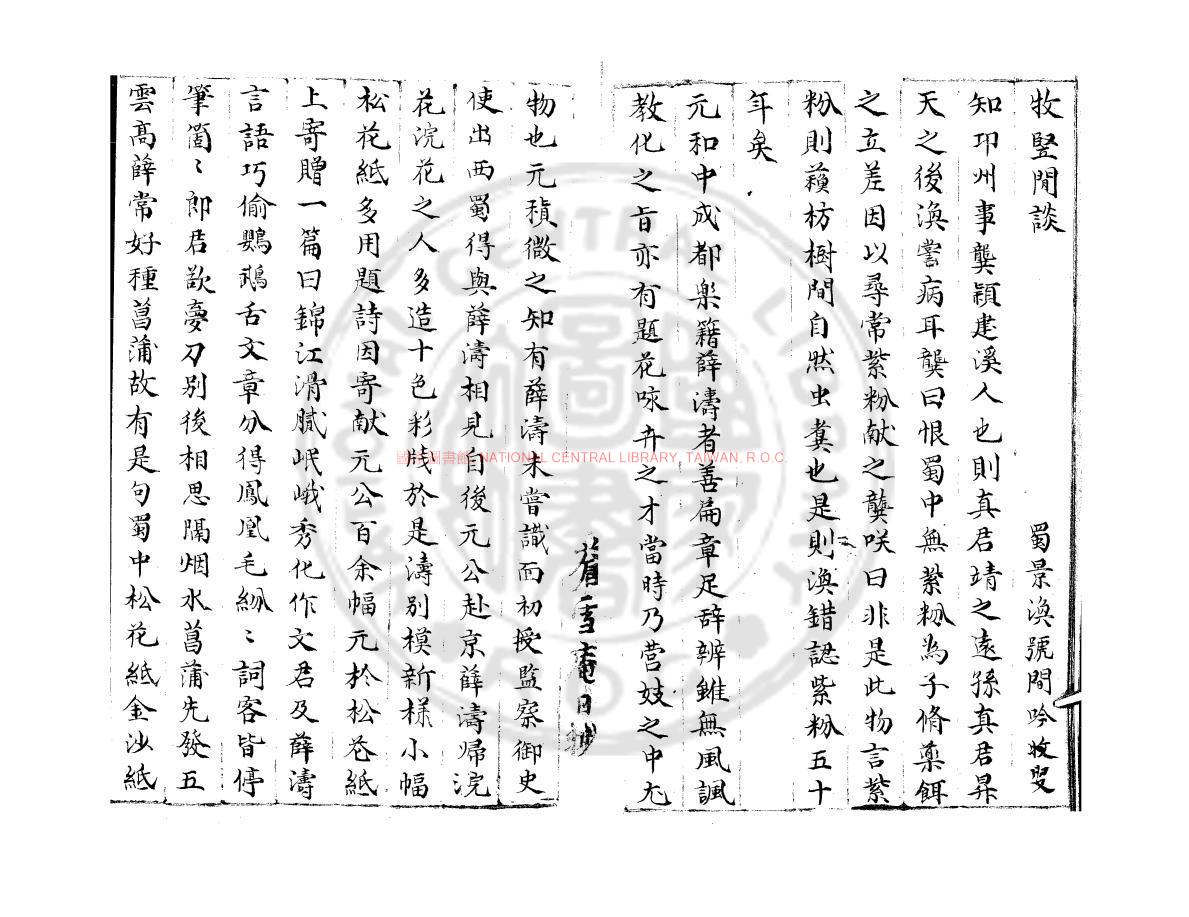 牧竪閒談　蜀景渙號閒吟牧叟
知邛州事龔穎建溪人也則真君靖之遠孫真君昇
天之後渙嘗病耳龔曰恨蜀中無紫粉為子脩藥餌
之立差因以尋常紫粉献之龔咲曰非是此物言紫
粉則蘓枋樹間自然虫糞也是則渙錯認紫粉五十
年矣
元和中成都楽籍薛濤者善扁章足辞辨雖無風諷
教化之旨亦有題花咏卉之才當時乃营妓之中尤
物也元稹微之知有薛濤未嘗識面初授監察御史
使出西蜀得與薛濤相見自後元公赴京薛濤帰浣
花浣花之人多造十色彩牋於是濤別模新様小幅
松花紙多用題詩因寄献元公百余幅元於松花紙
上寄贈一篇曰錦江滑膩岷峨秀化作文君及薛濤
言語巧偷鸚鵡舌文章分得鳳凰毛紛〻詞客皆停
筆箇〻郎君欲夣刀别後相思隔烟水菖蒲先發五
雲髙薛常好種菖蒲故有是句蜀中松花紙金沙紙
國家圖書館 NATIONAL CENTRAL LIBRARY, TAIWAN, R.O.C.